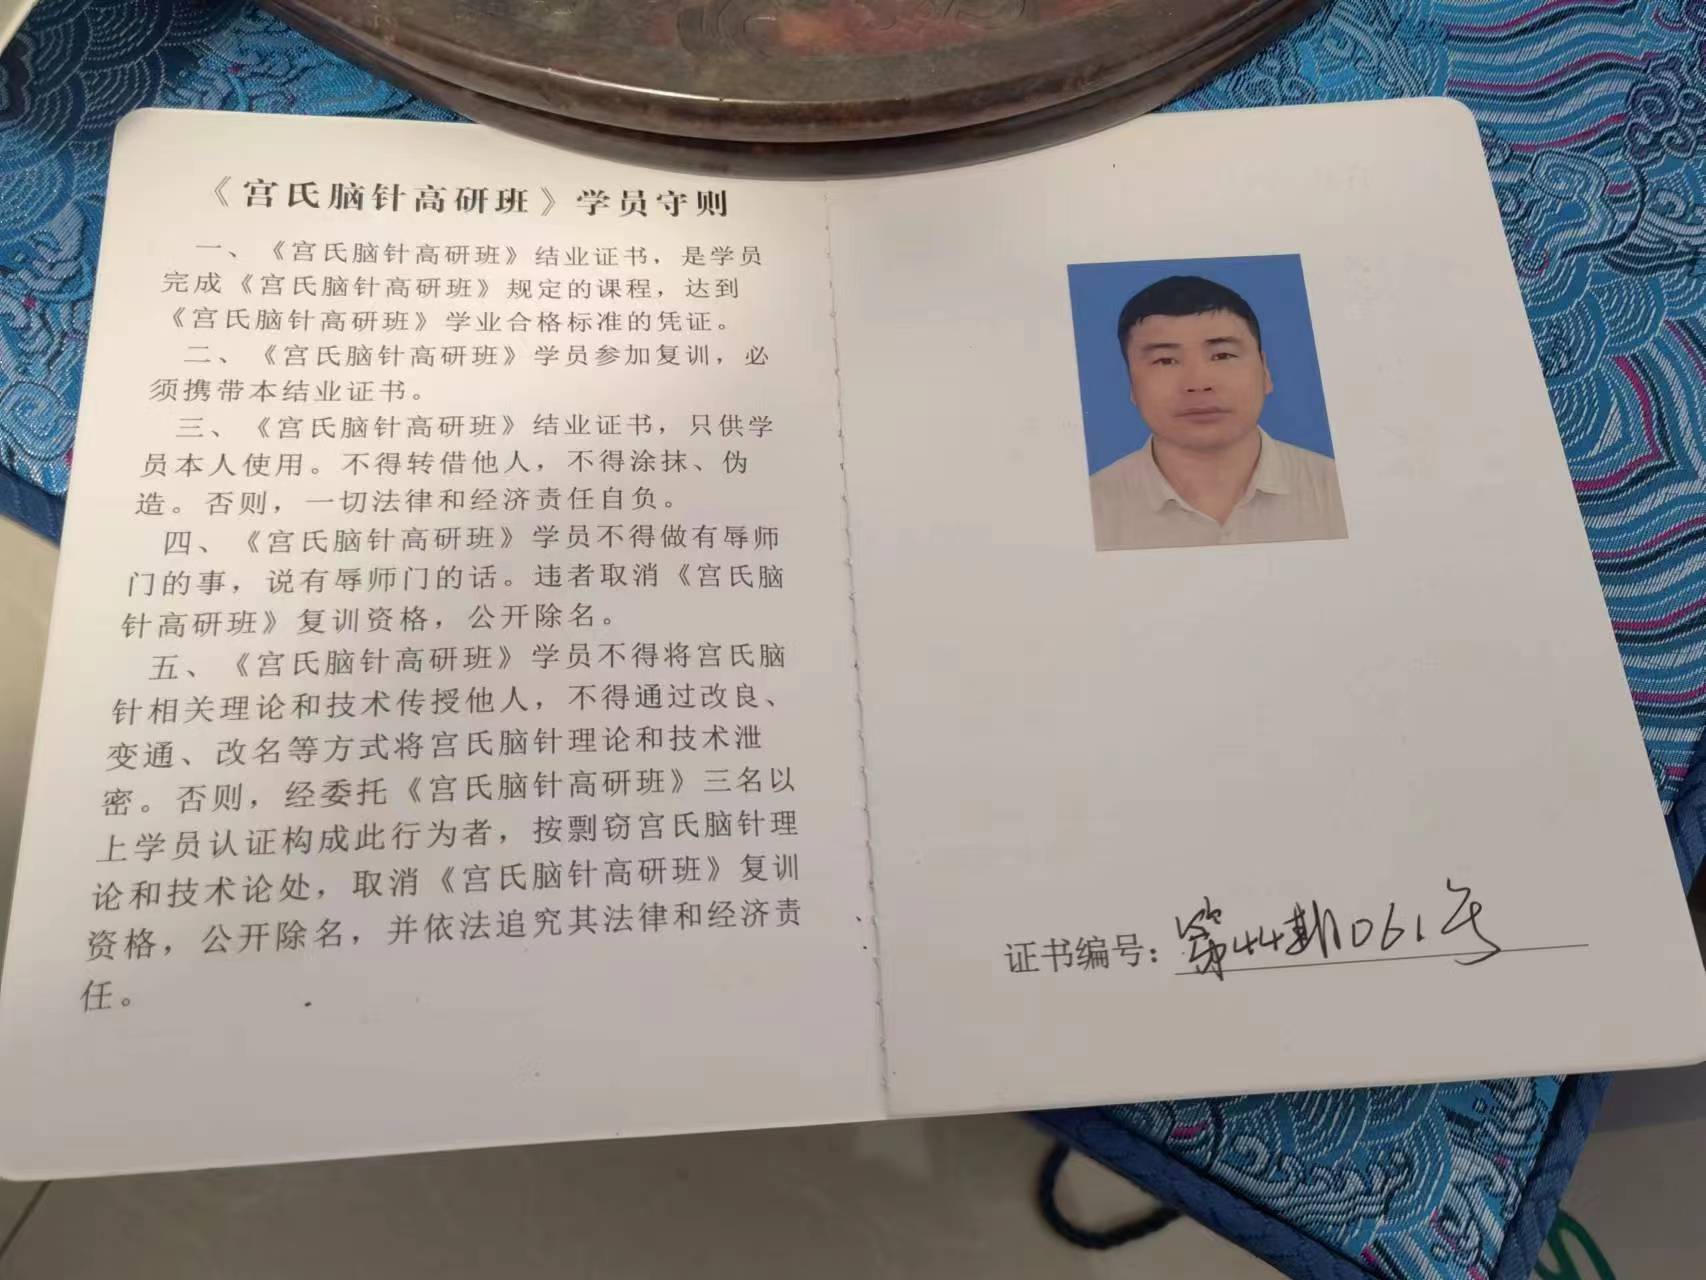 《宫氏脑针高研班》学员守则
一、《宫氏脑针高研班》结业证书，是学员
完成《宫氏脑针高研班》规定的课程，达到
《宫氏脑针高研班》学业合格标准的凭证。
二、《宫氏脑针高研班》学员参加复训，必
须携带本结业证书。
三、《宫氏脑针高研班》结业证书，只供学
员本人使用。不得转借他人，不得涂抹、伪
造。否则，一切法律和经济责任自负。
四、《宫氏脑针高研班》学员不得做有辱师
门的事，说有辱师门的话。违者取消《宫氏脑
针高研班》复训资格，公开除名。
五、《宫氏脑针高研班》学员不得将宫氏脑
针相关理论和技术传授他人，不得通过改良、
变通、改名等方式将宫氏脑针理论和技术泄
密。否则，经委托《宫氏脑针高研班》三名以
上学员认证构成此行为者，按剽窃宫氏脑针理
论和技术论处，取消《宫氏脑针高研班》复训
资格，公开除名，并依法追究其法律和经济责
任。
证书编号：第44期061号